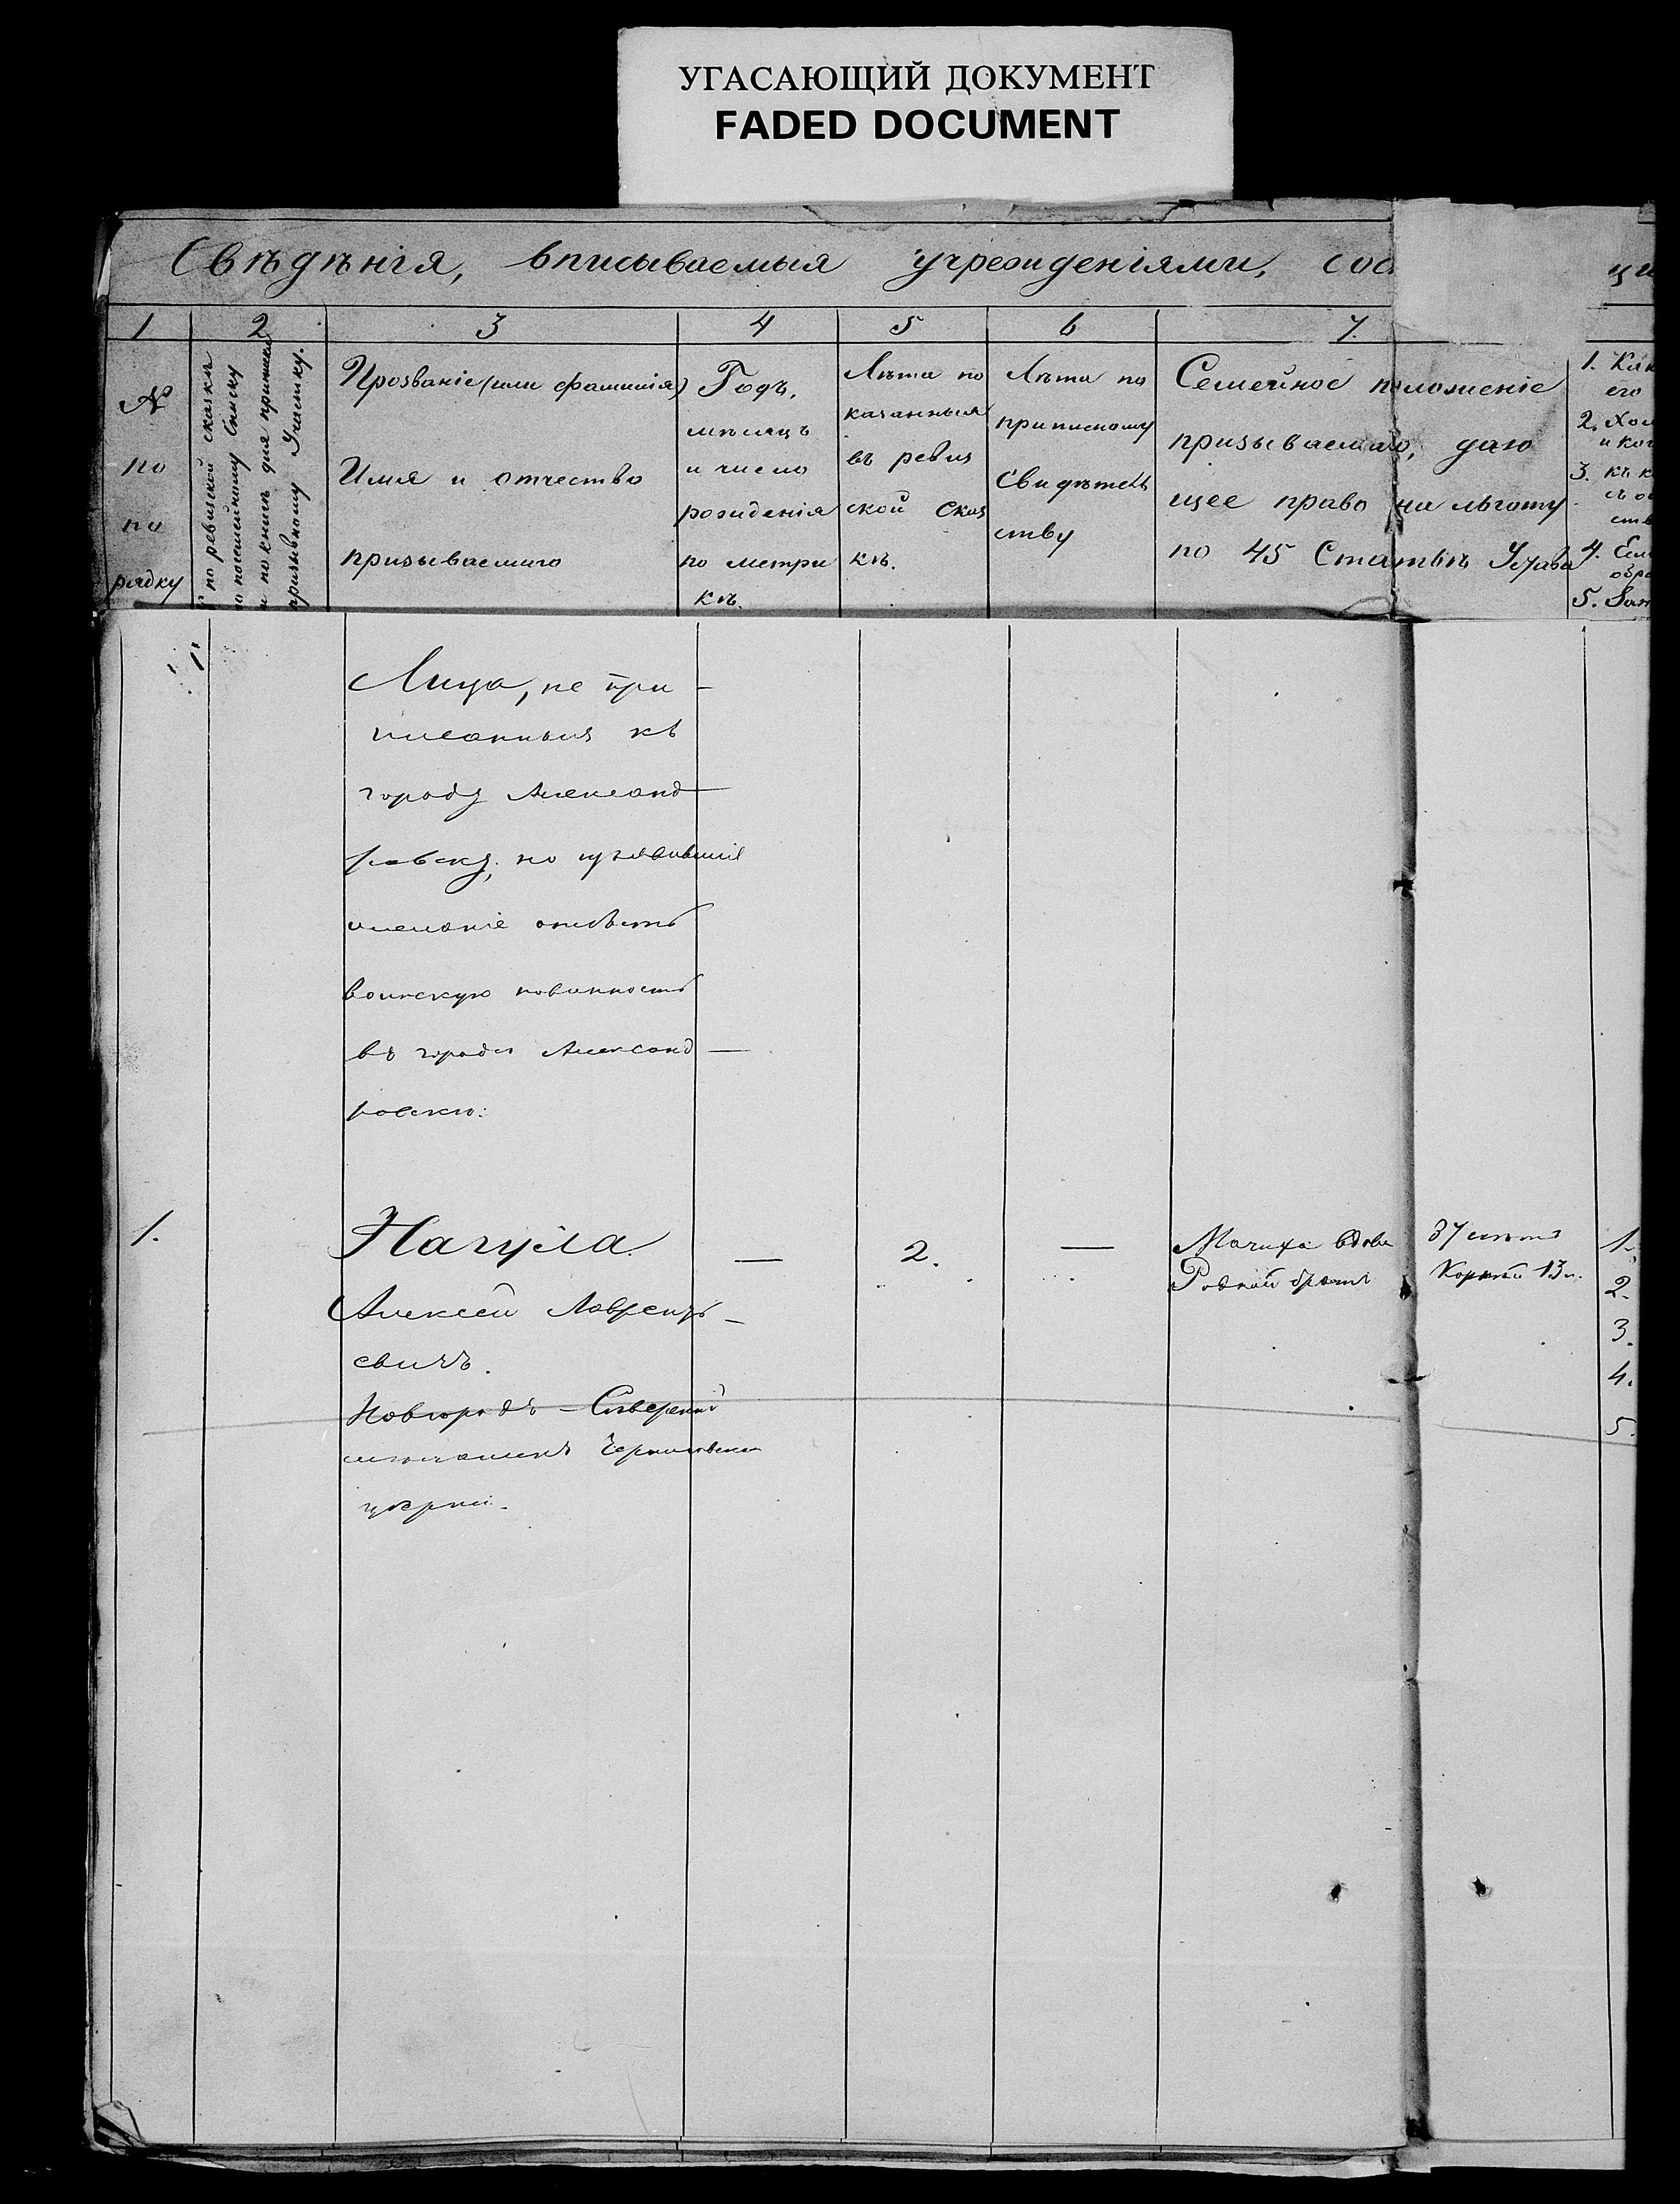 УГАСАЮЩИЙ ДОКУМЕНТ
FADED DOCUMENT
Свѣдѣнія, вписываемыя учрежденіями, сос
1 2 3 4 5 6 7.
№
по
по
рядку
по ревизской сказкѣ
по посемейному списку
и по книгѣ для приписки
призывному Участку.
Прозваніе (или фамилія)
Имя и отчество
призываемаго
Годъ,
мѣсяцъ
и число
рожденія
по метри
кѣ.
Лѣта по
казанныя
въ ревиз
ской Сказ
кѣ.
Лѣта по
приписному
Свидѣтель
ству
Семейное положеніе
призываемаго, даю
щее право на льготу
по 45 Статьѣ Устава
1. Как
его
2. Хол
и ког
3. къ к
съ о
ств
4. Если
обра
5. Зан
Лица, не при-
писанныя къ
городу Александ-
ровску, но изъявившія
желаніе отбыть
воинскую повинность
въ городѣ Александ-
ровскѣ:
1.
Нагула
Алексѣй Лаврентье-
евичъ.
Новгородъ-Сѣверскій
мѣщанинъ Черниговской
губерніи.
— 2. —
Мачиха вдова 37 лѣтъ
Родной братъ Корнѣй 13 л.
1.
2.
3.
4.
5.